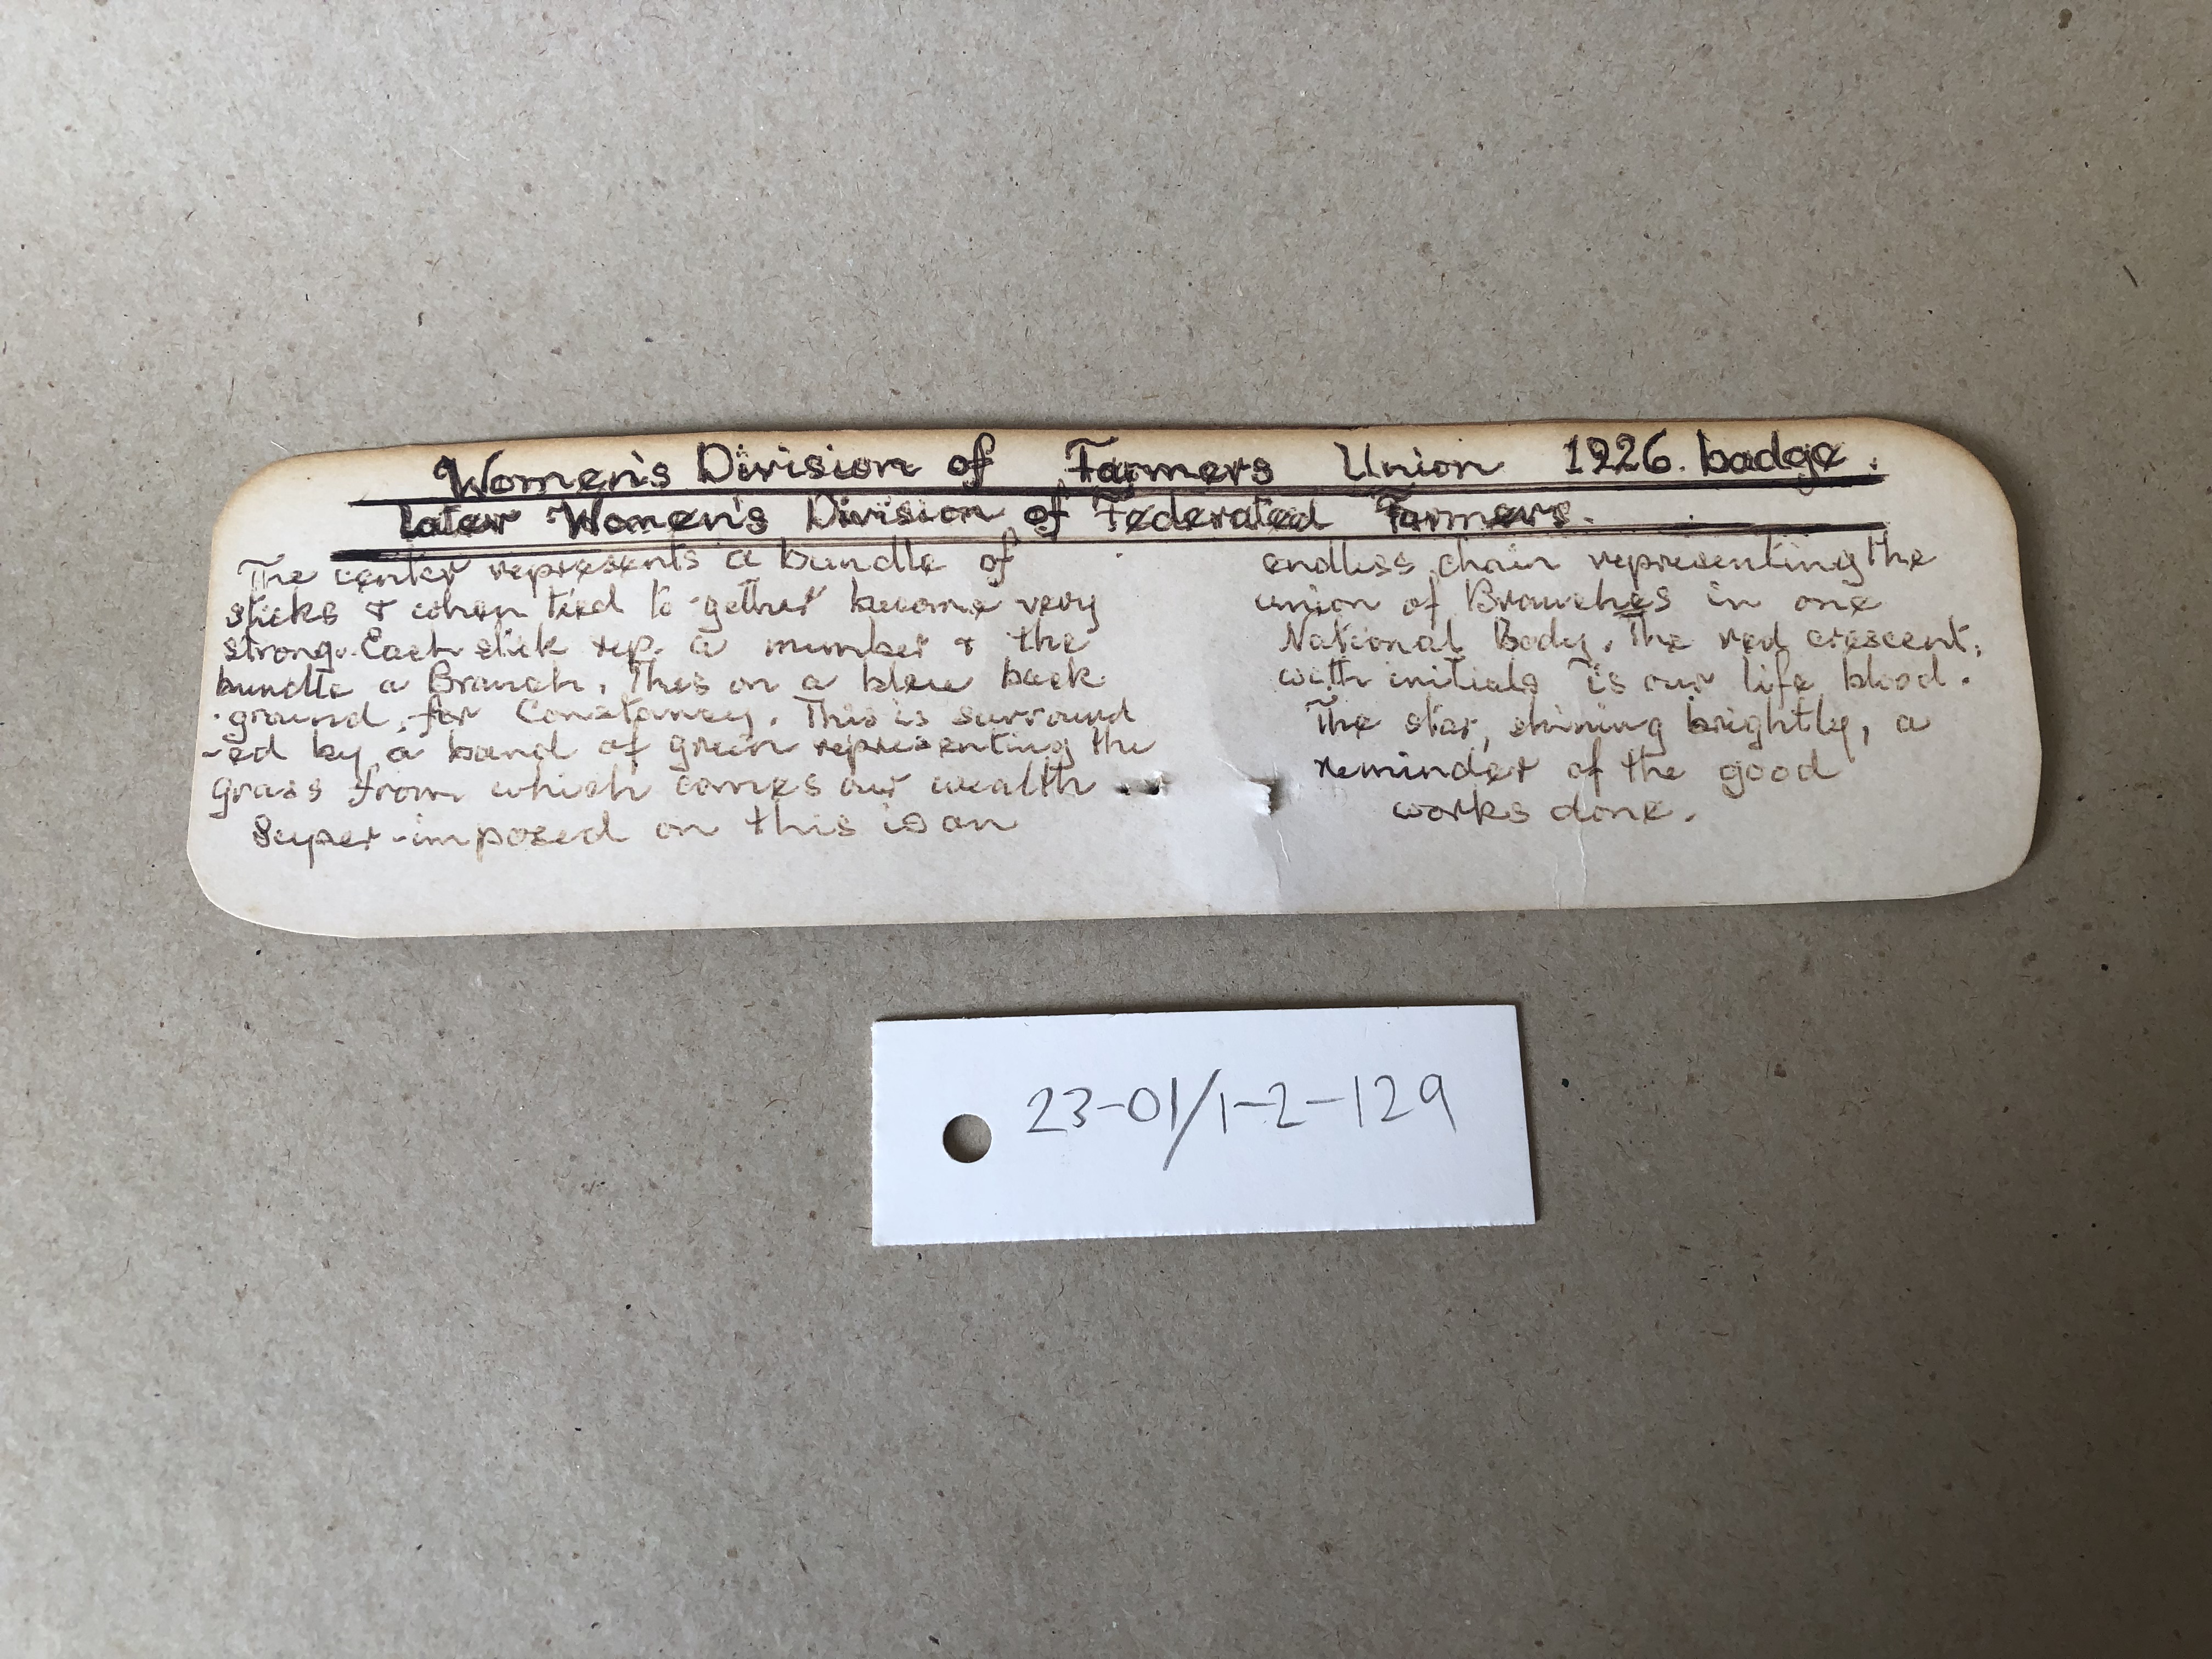 Women's Division of Farmers Union 1926. badge.
Later "Women's Division of Federated Farmers.
The center represents a bundle of
sticks & when tied to-gether become very
strong. Each stick rep. a member & the
bundle a Branch. This on a blue back
-ground, for Constancy. This is surround
-ed by a band of green representing the
grass from which comes our wealth
Super-imposed on this is an
endless chain representing the
union of Branches in one
National Body. The red crescent.
with initials is our life blood.
The star, shining brightly, a
reminder of the good
works done.
23-01/1-2-129